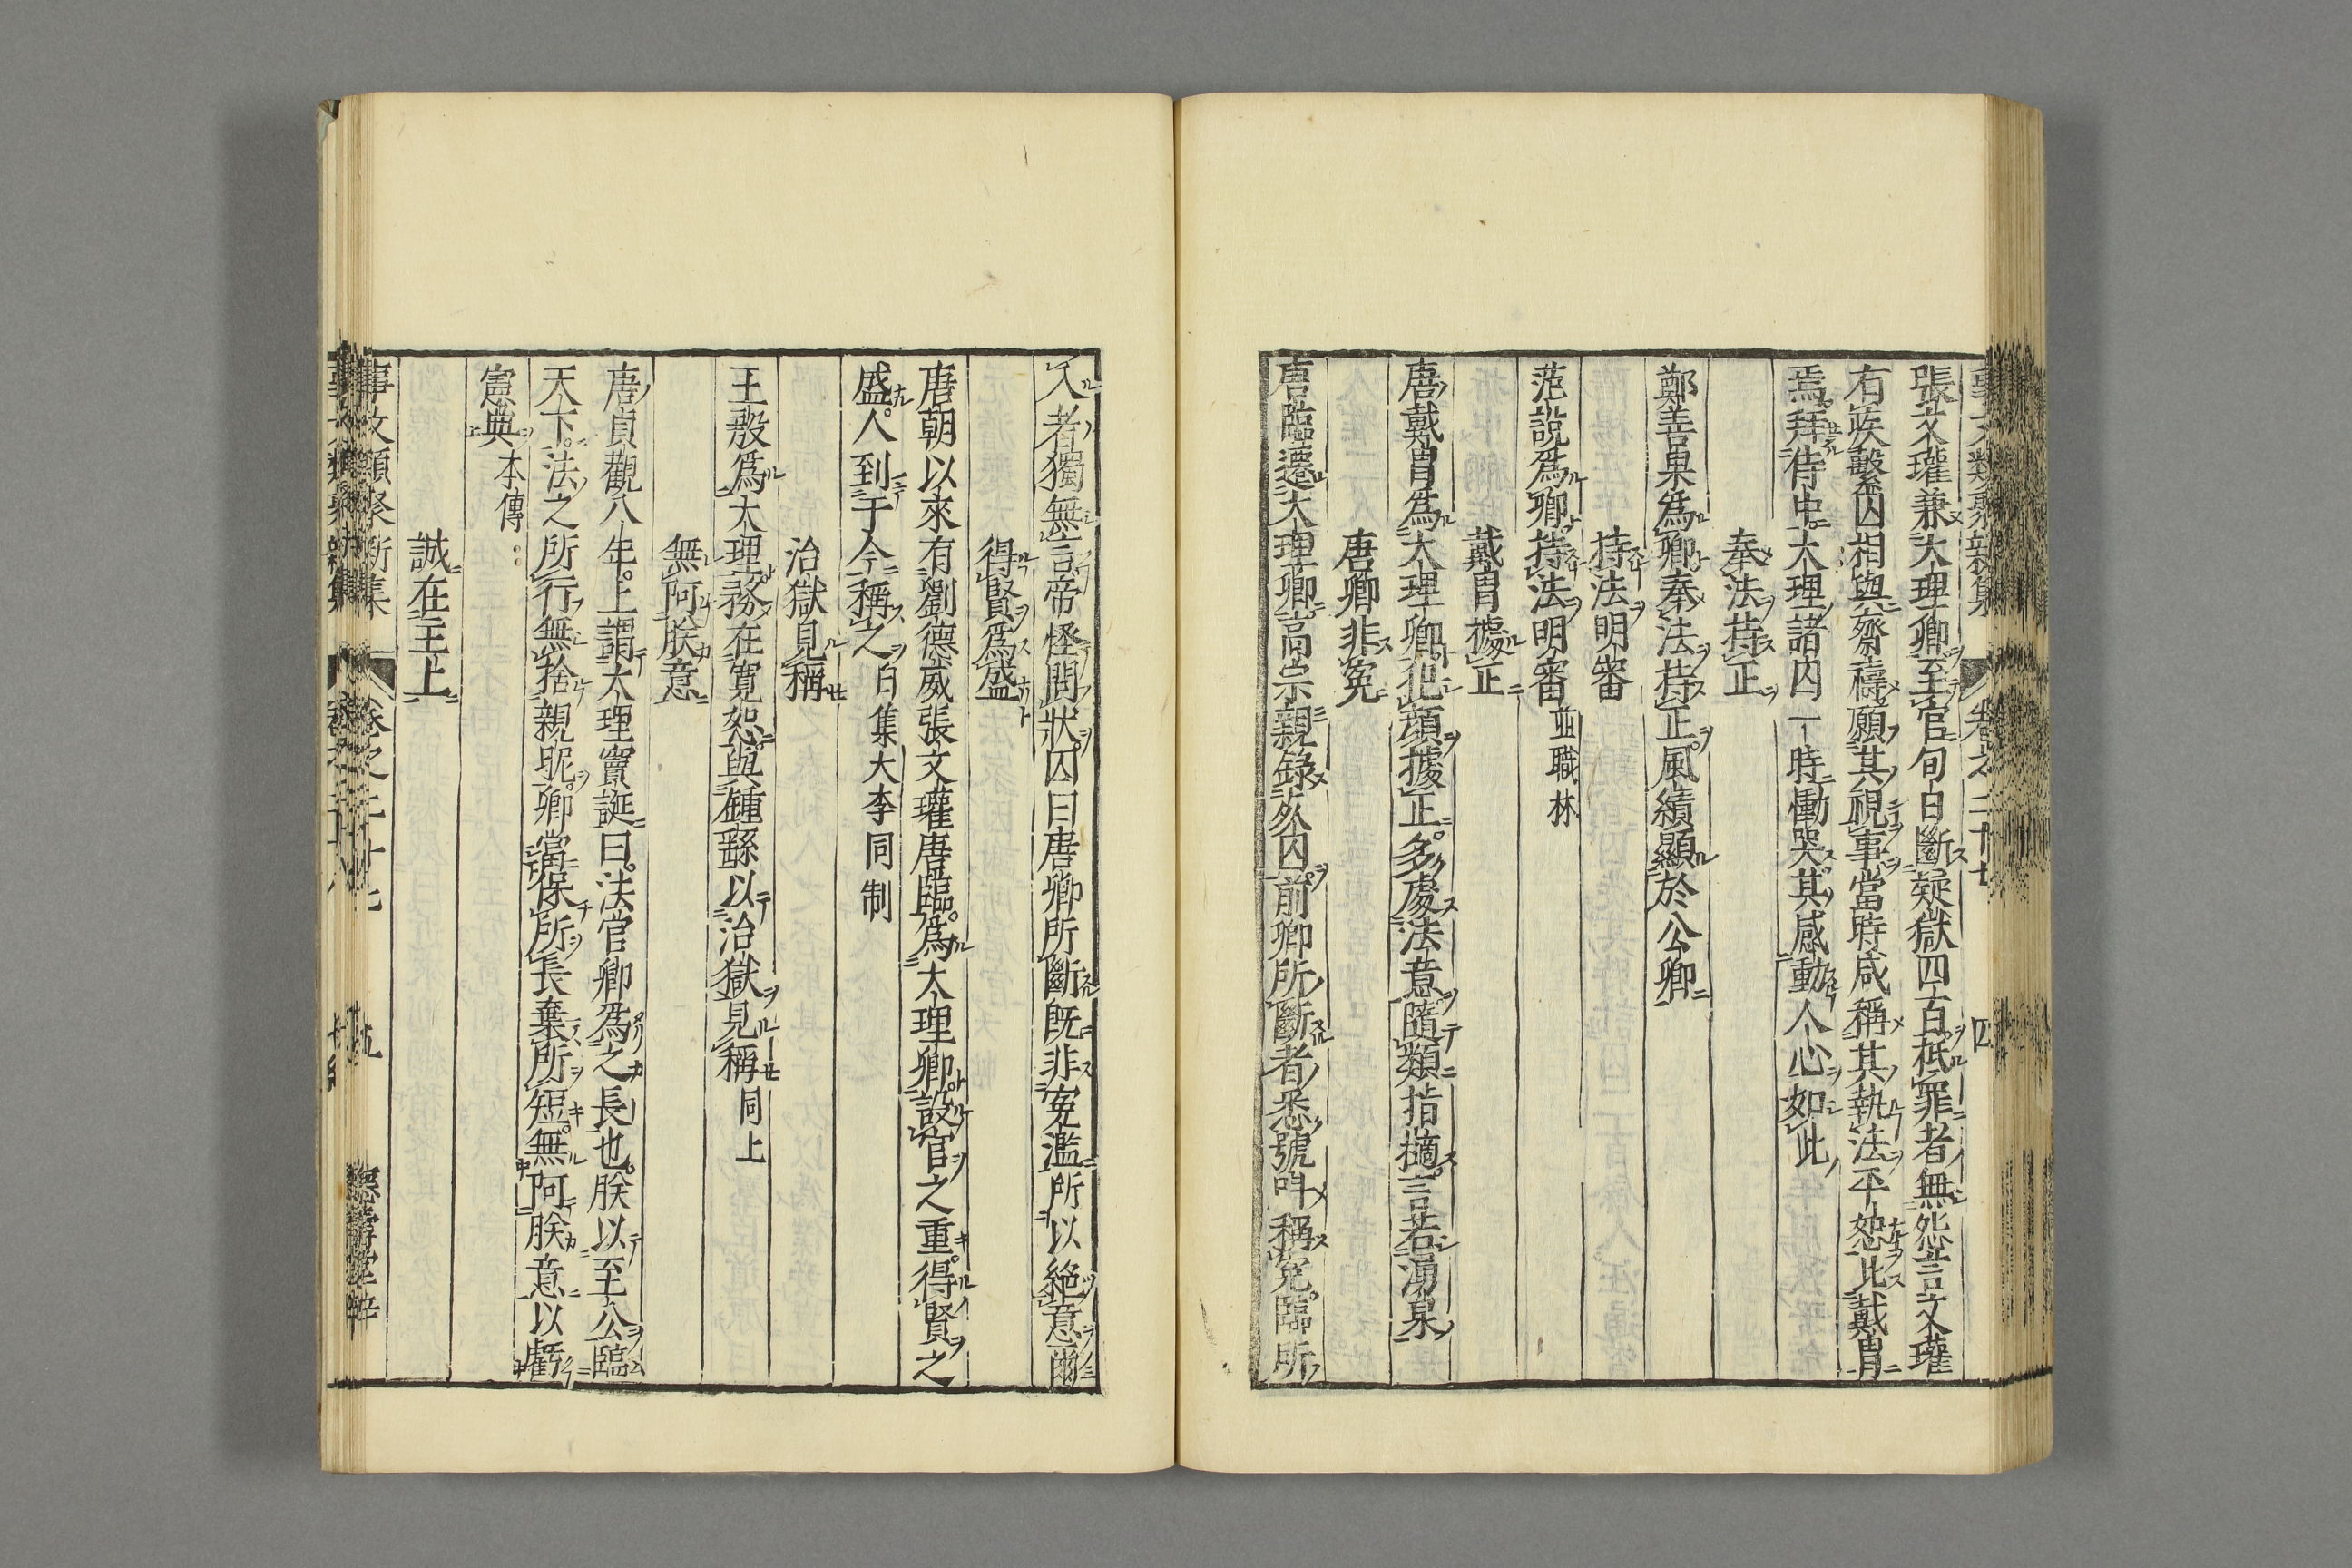 張文瓘兼大理卿至官旬日斷疑獄四百抵罪者無怨言文瓘
有疾繫囚相與齋禱願其視事當時咸稱其執法平恕比戴胄
焉拜侍中大理諸囚一時慟哭其感動人心如此
奉法持正
鄭善果為卿奉法持正風績顯於公卿
持法明審
范說為卿持法明審並職林
戴胄據正
唐戴胄為大理卿犯顔據正多處法意隨類指擿言若湧泉
唐卿非冤
唐臨遷大理卿高宗親錄死囚前卿所斷者悉號呌稱冤臨所
入者獨無言帝怪問狀囚曰唐卿所斷既非冤濫所以絶意爾
得賢為盛
唐朝以來有劉德威張文瓘唐臨為大理卿設官之重得賢之
盛人到于今稱之白集大李同制
治獄見稱
王敫為大理務在寬恕與鍾繇以治獄見稱同上
無阿朕意
唐貞觀八年上謂大理竇誕曰法官卿為之長也朕以至公臨
天下法之所行無捨親昵卿當保所長棄所短無阿朕意以虧
憲典本傳
誠在主上
事文類聚新集
卷之二十七
五
德壽堂梓